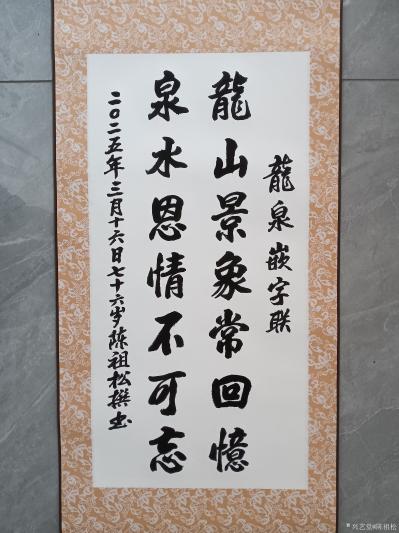 龍泉嵌字联
龍山景象常回憶
泉水恩情不可忘
二〇二五年三月十六日七十六岁陈祖松撰书
兴艺堂陈祖松